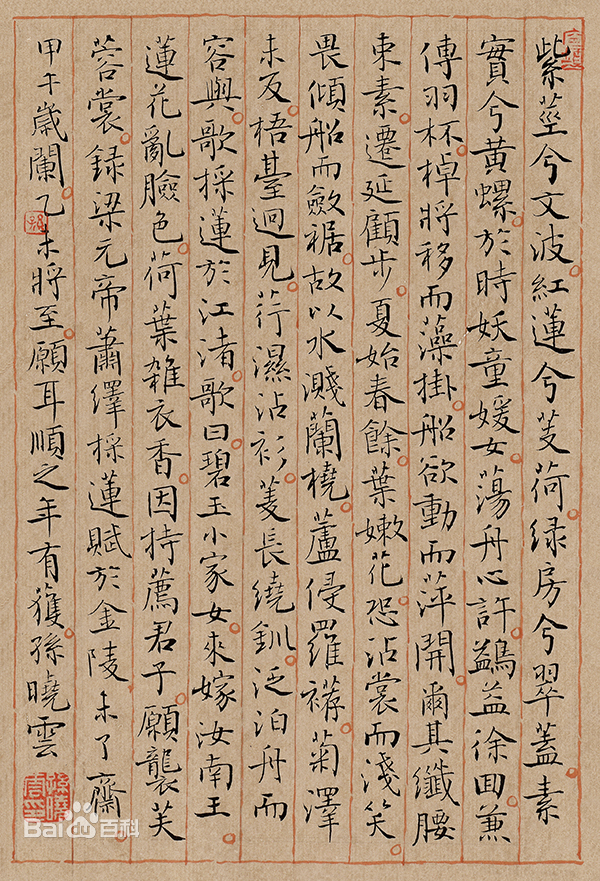 紫莖兮文波紅蓮兮芰荷绿房兮翠蓋素
實兮黃螺於時妖童媛女蕩舟心許鷁益徐回兼
傳羽杯棹將移而藻掛船欲動而萍開爾其纖腰
束素遷延顧步夏始春餘葉嫩花恐沾裳而淺笑
畏傾船而斂裾故以水濺蘭橈蘆侵羅𧝬菊澤
未反梧臺迥見荇濕沾衫菱長繞釧泛泊舟而
容與歌採蓮於江渚歌曰碧玉小家女來嫁汝南王
蓮花亂臉色荷葉雜衣香因持薦君子願襲芙
蓉裳録梁元帝蕭繹採蓮賦於金陵未了齋
甲午歲闌乙未將至願耳順之年有獲孫曉雲
Bai百科